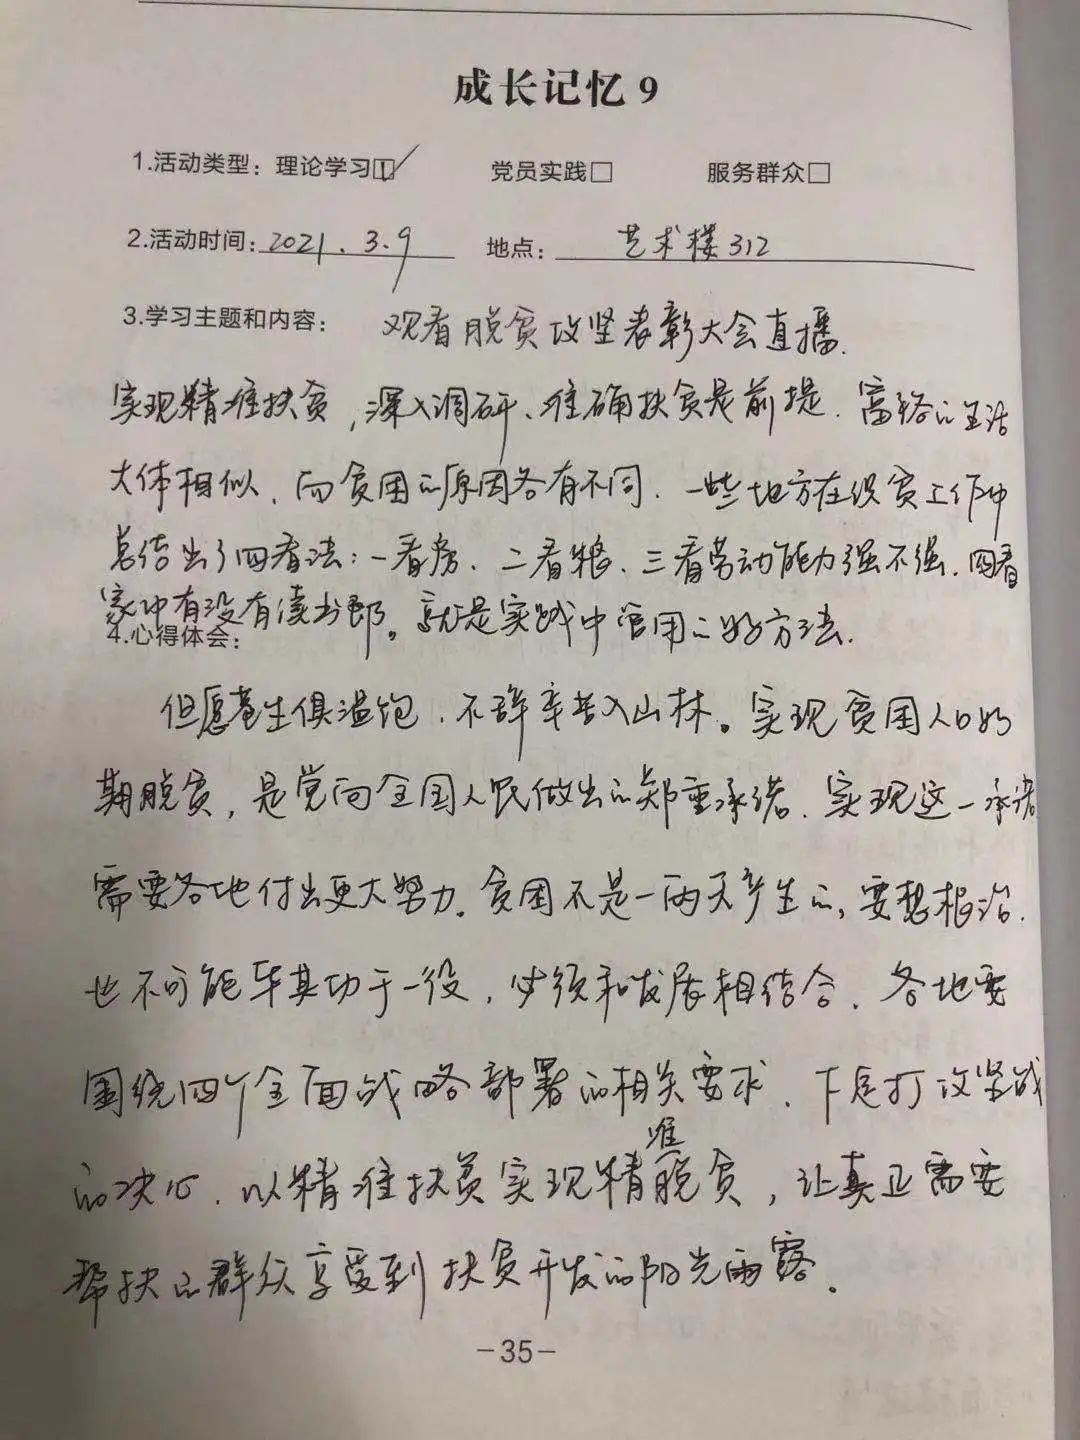 成长记忆 9
1.活动类型：理论学习☑ 党员实践□ 服务群众□
2.活动时间：2021.3.9 地点：艺术楼312
3.学习主题和内容： 观看脱贫攻坚表彰大会直播.
实现精准扶贫，深入调研、准确扶贫是前提.富裕的生活
大体相似，而贫困的原因各有不同.一些地方在扶贫工作中
总结出了四看法：一看房、二看粮、三看劳动能力强不强.四看
家中有没有读书郎。就是实践中管用的好方法.
4.心得体会：
但愿苍生俱温饱，不辞辛苦入山林。实现贫困人口如
期脱贫，是党向全国人民做出的郑重承诺.实现这一承诺
需要各地付出更大努力.贫困不是一两天产生的，要想根治.
也不可能毕其功于一役，必须和发展相结合.各地要
围绕四个全面战略部署的相关要求.下定打攻坚战
的决心.以精准扶贫实现精准脱贫，让真正需要
帮扶的群众享受到扶贫开发的阳光雨露.
-35-